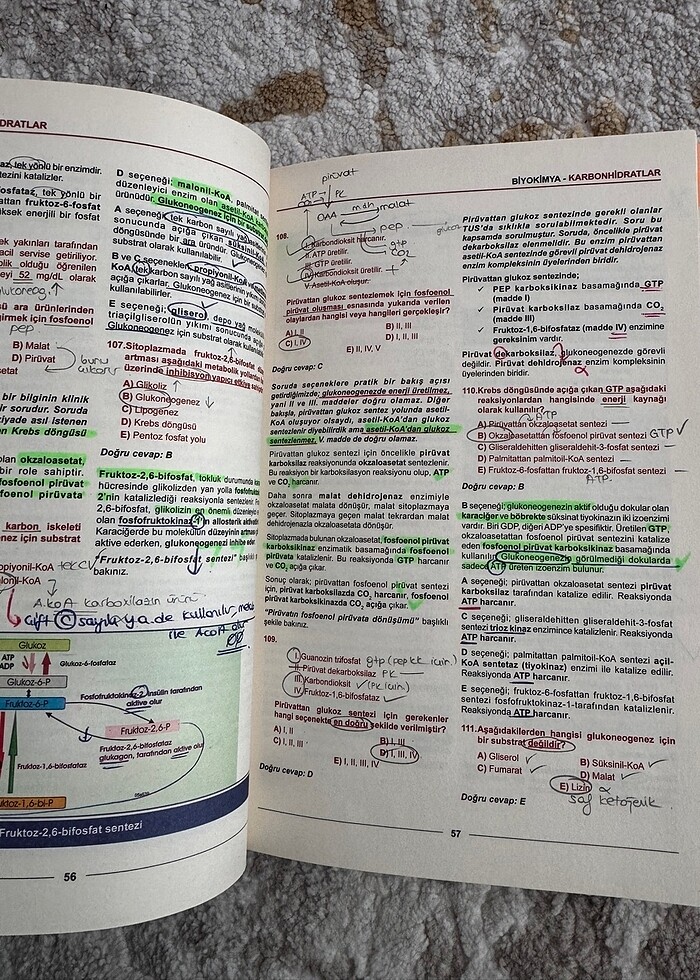 DRATLAR
az, tek yönlü bir enzimdir.
tezini katalizler.
osfataz, tek yönlü bir
fruktoz-6-fosfat
ksek enerjili bir fosfat
yakınları tarafından
acil servise getiliyor.
olik olduğu öğrenilen
eyi 52 mg/dL olarak
ara ürünlerinden
girmek için fosfoenol
pep.
B) Malat
D) Pirüvat
setat
bunu
bir bilginin klinik
ir sorudur. Soruda
iyade asıl istenen
n Krebs döngüsü
olan okzaloasetat,
bir role sahiptir.
fosfoenol pirüvat
pirüvata
karbon iskeleti
enez için substrat
opiyonil-KoA tek C ✓
alonil-KoA
D seçeneği; malonil-KoA, palmitat
düzenleyici enzim olan asetil-KoA
ürünüdür. Glukoneogenez için bir
A seçeneği; tek karbon sayılı yağ
sonucunda açığa çıkan süksinil-KoA
döngüsünde bir ara üründür. Glukoneogenez
substrat olarak kullanılabilir.
B ve C seçenekleri; propiyonil-KoA
KoA tek karbon sayılı yağ asitlerinin yıkımı
açığa çıkarlar. Glukoneogenez için substrat
kullanılabilirler.
E seçeneği; gliserol, depo yağ
triaçilgliserolün yıkımı sonucunda açığa
Glukoneogenez için substrat olarak kullanılabilir
107.Sitoplazmada fruktoz-2,6-bifosfat
artması aşağıdaki metabolik yollardan
üzerinde inhibisyon yapıcı etkiye sahiptir
A) Glikoliz ↑
B) Glukoneogenez
C) Lipogenez
D) Krebs döngüsü
E) Pentoz fosfat yolu
Doğru cevap: B
Fruktoz-2,6-bifosfat, tokluk durumunda
hücresinde glikolizden yan yolla fosfofruktokinaz
2'nin katalizlediği reaksiyonla sentezlenir.
2,6-bifosfat, glikolizin en önemli düzenleyici
olan fosfofruktokinaz-1'in allosterik aktivatörü
Karaciğerde bu molekülün düzeyinin artması
aktive ederken, glukoneogenezi inhibe eder
"Fruktoz-2,6-bifosfat sentezi" başlıklı
bakınız.
A.koA karboxilazın ürünü
Çift C sayılı y.a.de kullanılır
Glukoz
ATP
ADP
Glukoz-6-fosfataz
Glukoz-6-P
Fruktoz-6-P
Fosfofruktokinaz-2 insülin tarafından
aktive olur
Fruktoz-2,6-P
Fruktoz-2,6-bifosfataz
glukagon, tarafından aktive olur
Fruktoz-1,6-bifosfataz
Fruktoz-1,6-bi-P
Fruktoz-2,6-bifosfat sentezi
56
BİYOKİMYA - KARBONHİDRATLAR
piruvat
ATP
CO2
PK
OAA
mdh
malat
pep
gtp
CO2
108.
I. Karbondioksit harcanır.
II. ATP üretilir.
III. GTP üretilir.
IV. Karbondioksit üretilir. +
V. Asetil-KoA oluşur.
Pirüvattan glukoz sentezlemek için fosfoenol
pirüvat oluşması esnasında yukarıda verilen
olaylardan hangisi veya hangileri gerçekleşir?
A) I, II
B) II, III
C) I, IV
D) I, II, III
E) II, IV, V
Doğru cevap: C
Soruda seçeneklere pratik bir bakış açısı
getirdiğimizde; glukoneogenezde enerji üretilmez,
yani II ve III. maddeler doğru olamaz. Diğer
bakışla, pirüvattan glukoz sentez yolunda asetil-
KoA oluşuyor olsaydı, asetil-KoA'dan glukoz
sentezlenir diyebilirdik ama asetil-KoA'dan glukoz
sentezlenmez. V. madde de doğru olamaz.
Pirüvattan glukoz sentezi için öncelikle pirüvat
karboksilaz reaksiyonunda okzaloasetat sentezlenir.
Bu reaksiyon bir karboksilasyon reaksiyonu olup, ATP
ve CO2 harcanır.
Daha sonra malat dehidrojenaz enzimiyle
okzaloasetat malata dönüşür, malat sitoplazmaya
geçer. Sitoplazmaya geçen malat tekrardan malat
dehidrojenazla okzaloasetata dönüşür.
Sitoplazmada bulunan okzaloasetat, fosfoenol pirüvat
karboksikinaz enzimatik basamağında fosfoenol
pirüvata katalizlenir. Bu reaksiyonda GTP harcanır
ve CO2 açığa çıkar.
Sonuç olarak; pirüvattan fosfoenol pirüvat sentezi
için, pirüvat karboksilazda CO2 harcanır, fosfoenol
pirüvat karboksikinazda CO2 açığa çıkar.
"Pirüvatın fosfoenol pirüvata dönüşümü" başlıklı
şekile bakınız.
109.
I. Guanozin trifosfat gtp (pepck için)
II. Pirüvat dekarboksilaz PK —
III. Karbondioksit ✓ (PK için)
IV. Fruktoz-1,6-bifosfataz ✓
Pirüvattan glukoz sentezi için gerekenler
hangi seçenekte en doğru şekilde verilmiştir?
A) I, II
B) I, III
C) I, II, III
D) I, III, IV
E) I, II, III, IV
Doğru cevap: D
Pirüvattan glukoz sentezinde gerekli olanlar
TUS'da sıklıkla sorulabilmektedir. Soru bu
kapsamda sorulmuştur. Soruda, öncelikle pirüvat
dekarboksilaz elenmelidir. Bu enzim pirüvattan
asetil-KoA sentezinde görevli pirüvat dehidrojenaz
enzim kompleksinin üyelerinden biridir.
Pirüvattan glukoz sentezinde;
✓ PEP karboksikinaz basamağında GTP
(madde I)
✓ Pirüvat karboksilaz basamağında CO2
(madde III)
✓ Fruktoz-1,6-bifosfataz (madde IV) enzimine
gereksinim vardır.
Pirüvat dekarboksilaz, glukoneogenezde görevli
değildir. Pirüvat dehidrojenaz enzim kompleksinin
üyelerinden biridir.
110.Krebs döngüsünde açığa çıkan GTP aşağıdaki
reaksiyonlardan hangisinde enerji kaynağı
olarak kullanılır?
ATP
A) Pirüvattan okzaloasetat sentezi —
B) Okzaloasetattan fosfoenol pirüvat sentezi GTP ✓
C) Gliseraldehitten gliseraldehit-3-fosfat sentezi —
D) Palmitattan palmitoil-KoA sentezi —
E) Fruktoz-6-fosfattan fruktoz-1,6-bifosfat sentezi —
ATP-
Doğru cevap: B
B seçeneği; glukoneogenezin aktif olduğu dokular olan
karaciğer ve böbrekte süksinat tiyokinazın iki izoenzimi
vardır. Biri GDP, diğeri ADP'ye spesifiktir. Üretilen GTP,
okzaloasetattan fosfoenol pirüvat sentezini katalize
eden fosfoenol pirüvat karboksikinaz basamağında
kullanılır. Glukoneogenezin görülmediği dokularda
sadece ATP üreten izoenzim bulunur.
A seçeneği; pirüvattan okzaloasetat sentezi pirüvat
karboksilaz tarafından katalize edilir. Reaksiyonda
ATP harcanır.
C seçeneği; gliseraldehitten gliseraldehit-3-fosfat
sentezi trioz kinaz enzimince katalizlenir. Reaksiyonda
ATP harcanır.
D seçeneği; palmitattan palmitoil-KoA sentezi açil-
KoA sentetaz (tiyokinaz) enzimi ile katalize edilir.
Reaksiyonda ATP harcanır.
E seçeneği; fruktoz-6-fosfattan fruktoz-1,6-bifosfat
sentezi fosfofruktokinaz-1 tarafından katalizlenir.
Reaksiyonda ATP harcanır.
111.Aşağıdakilerden hangisi glukoneogenez için
bir substrat değildir?
A) Gliserol ✓
B) Süksinil-KoA ✓
C) Fumarat ✓
D) Malat ✓
E) Lizin
saf ketojenik.
Doğru cevap: E
57